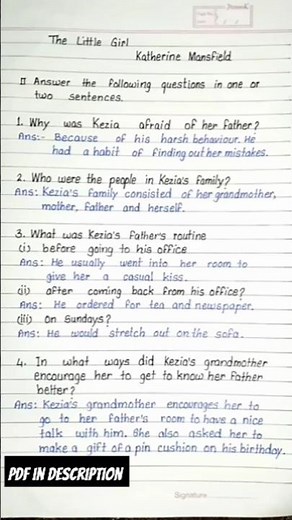 The Little Girl
Katherine Mansfield
II Answer the following questions in one or
two sentences.
1. Why was Kezia afraid of her father?
Ans:- Because of his harsh behaviour. He
had a habit of finding out her mistakes.
2. Who were the people in Kezia's family?
Ans: Kezia's family consisted of her grandmother,
mother, father and herself.
3. What was Kezia's father's routine
(i) before going to his office
Ans: He usually went into her room to
give her a casual kiss.
(ii) after coming back from his office?
Ans: He ordered for tea and newspaper.
(iii) on Sundays?
Ans: He would stretch out on the sofa.
4. In what ways did Kezia's grandmother
encourage her to get to know her father
better?
Ans: Kezia's grandmother encourages her to
go to her father's room to have a nice
talk with him. She also asked her to
make a gift of a pin cushion on his birthday.
PDF IN DESCRIPTION
Signature